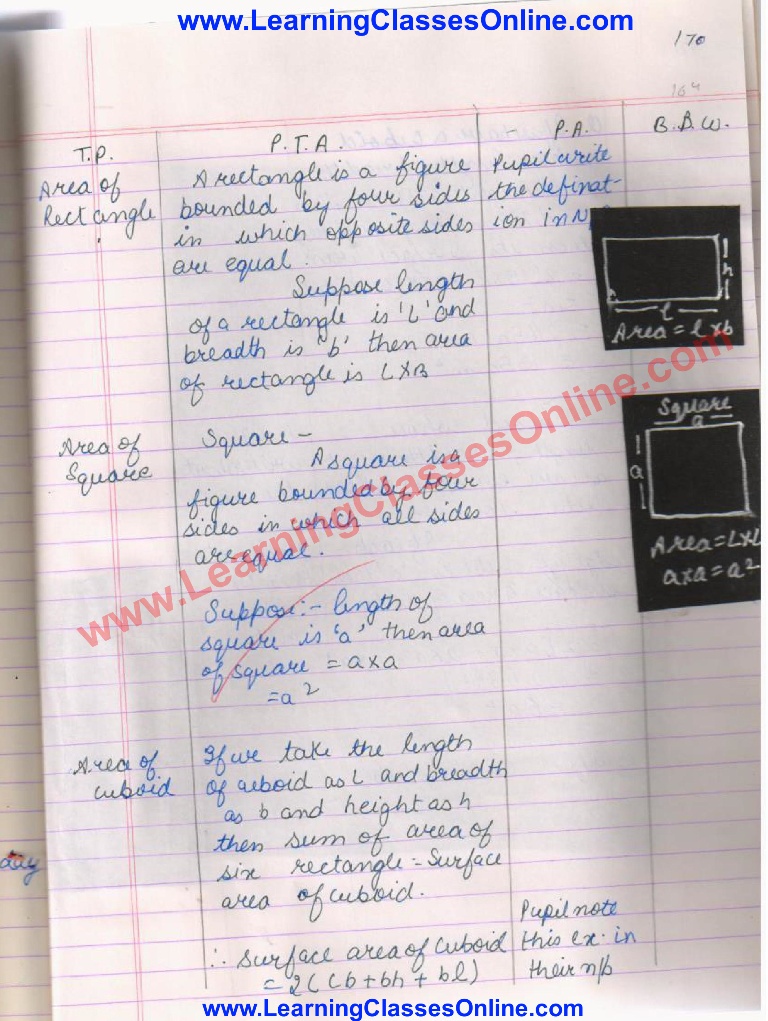 www.LearningClassesOnline.com
170
164
T.P.
P.T.A.
P.A.
B.B.W.
Area of
Rectangle
A rectangle is a figure
bounded by four sides
in which opposite sides
are equal.
Suppose length
of a rectangle is 'L' and
breadth is 'b' then area
of rectangle is L×B
Pupil write
the definat-
ion in N
h
l
Area = l×b
Area of
Square
Square -
A square is a
figure bounded by four
sides in which all sides
are equal.
Suppose:- length of
square is 'a' then area
of square = a×a
= a²
Square
a
a
Area = L×L
a×a = a²
www.LearningClassesOnline.com
Area of
cuboid
If we take the length
of cuboid as L and breadth
as b and height as h
then sum of area of
six rectangle = Surface
area of cuboid.
∴ Surface area of cuboid
= 2(lb + bh + bl)
Pupil note
this ex. in
their n/b
day
www.LearningClassesOnline.com